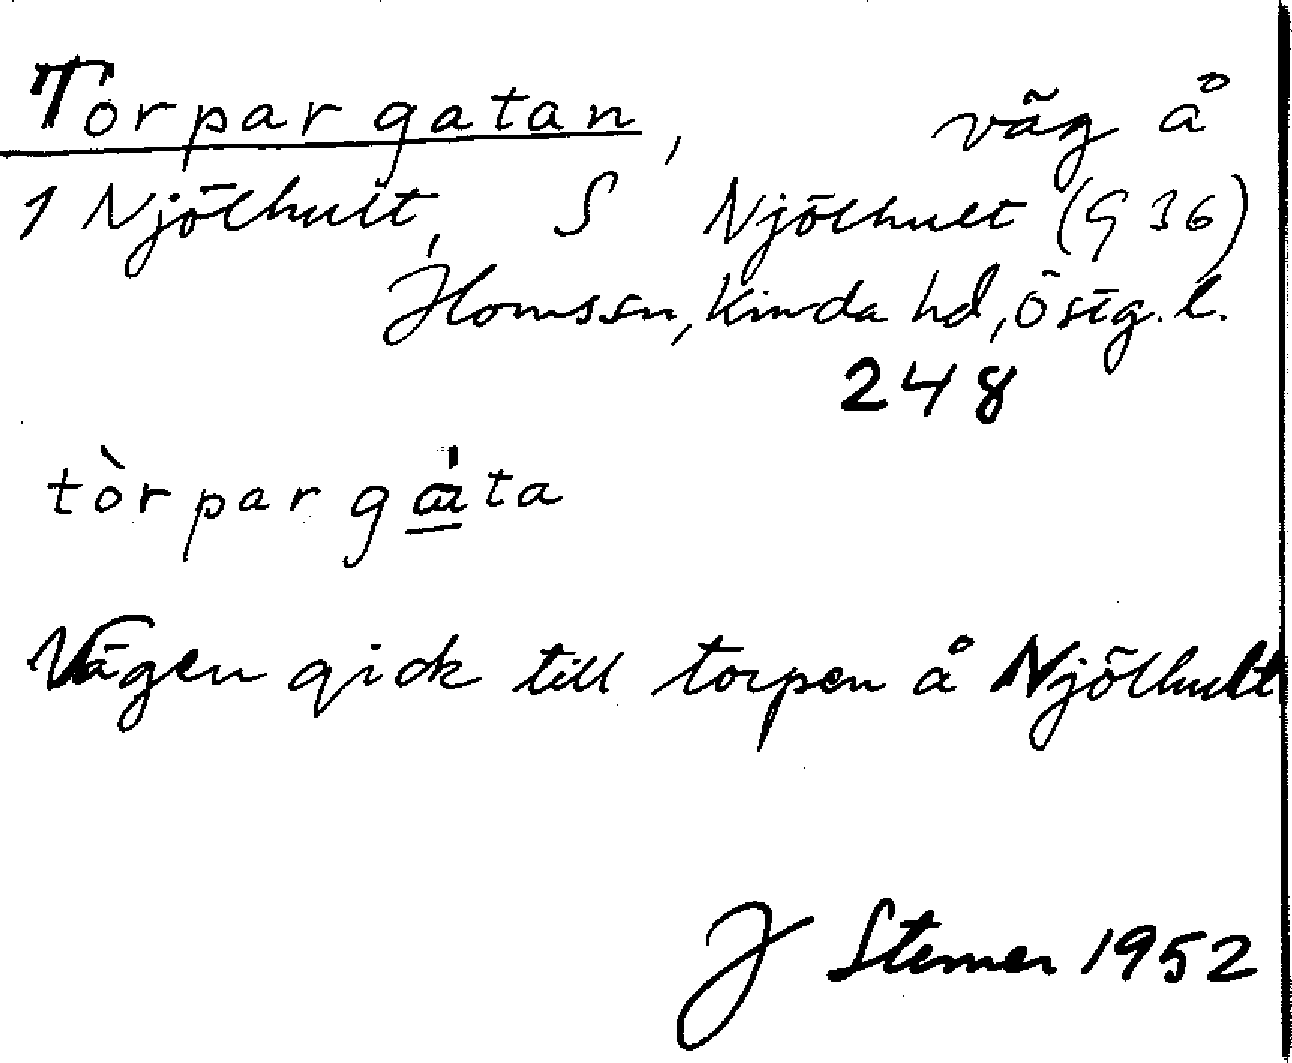 Torpargatan, väg å
1 Njölhult, S Njölhult (G 36)
Horns sn, Kinda hd, Östg. l.
248
tòrpargàta
Vägen gick till torpen å Njölhult
J Sterner 1952